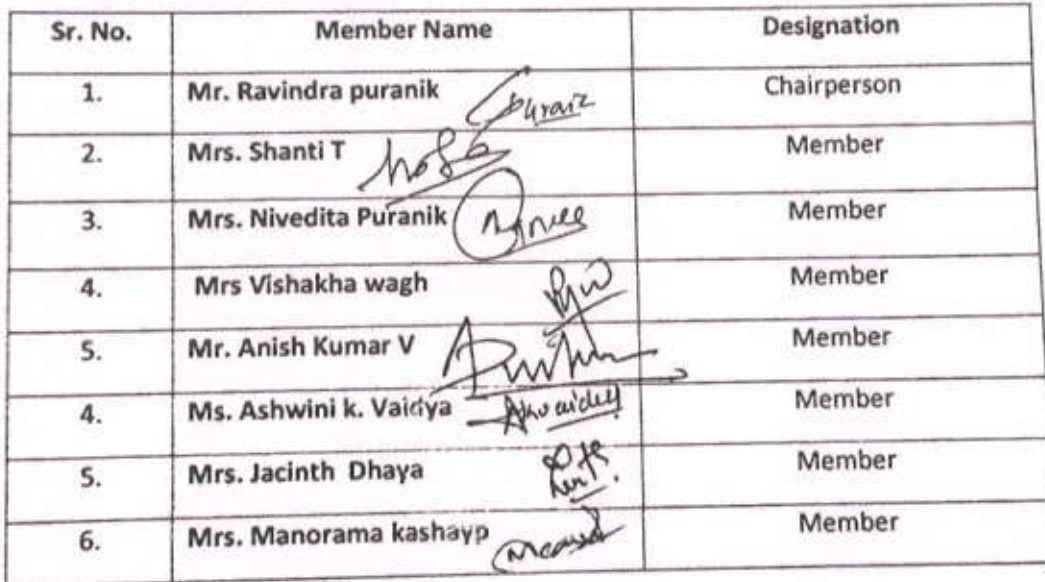 Sr. No. Member Name Designation
1. Mr. Ravindra puranik Chairperson
2. Mrs. Shanti T Member
3. Mrs. Nivedita Puranik Member
4. Mrs Vishakha wagh Member
5. Mr. Anish Kumar V Member
4. Ms. Ashwini k. Vaidya Member
5. Mrs. Jacinth Dhaya Member
6. Mrs. Manorama kashayp Member